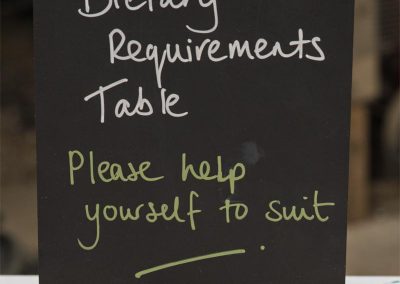 Dietary
Requirements
Table
Please help
yourself to suit